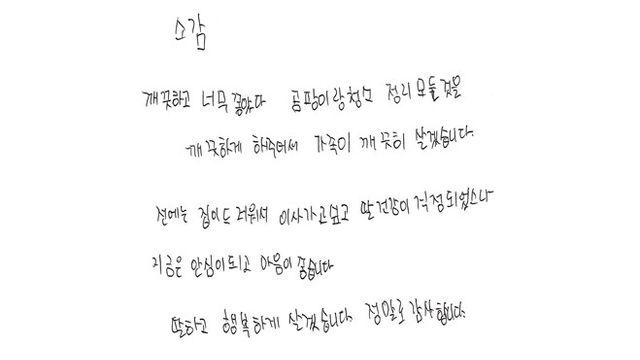 소감
깨끗하고 너무 좋았다 곰팡이랑 청소 정리 모들것을
깨끗하게 해주어서 가족이 깨끗히 살겠습니다.
전에는 집이 드러워서 이사가고 싶고 딸 건강이 걱정되었으나
지금은 안심이 되고 마음이 좋습니다
딸하고 행복하게 살겠습니다. 정말로 감사합니다.